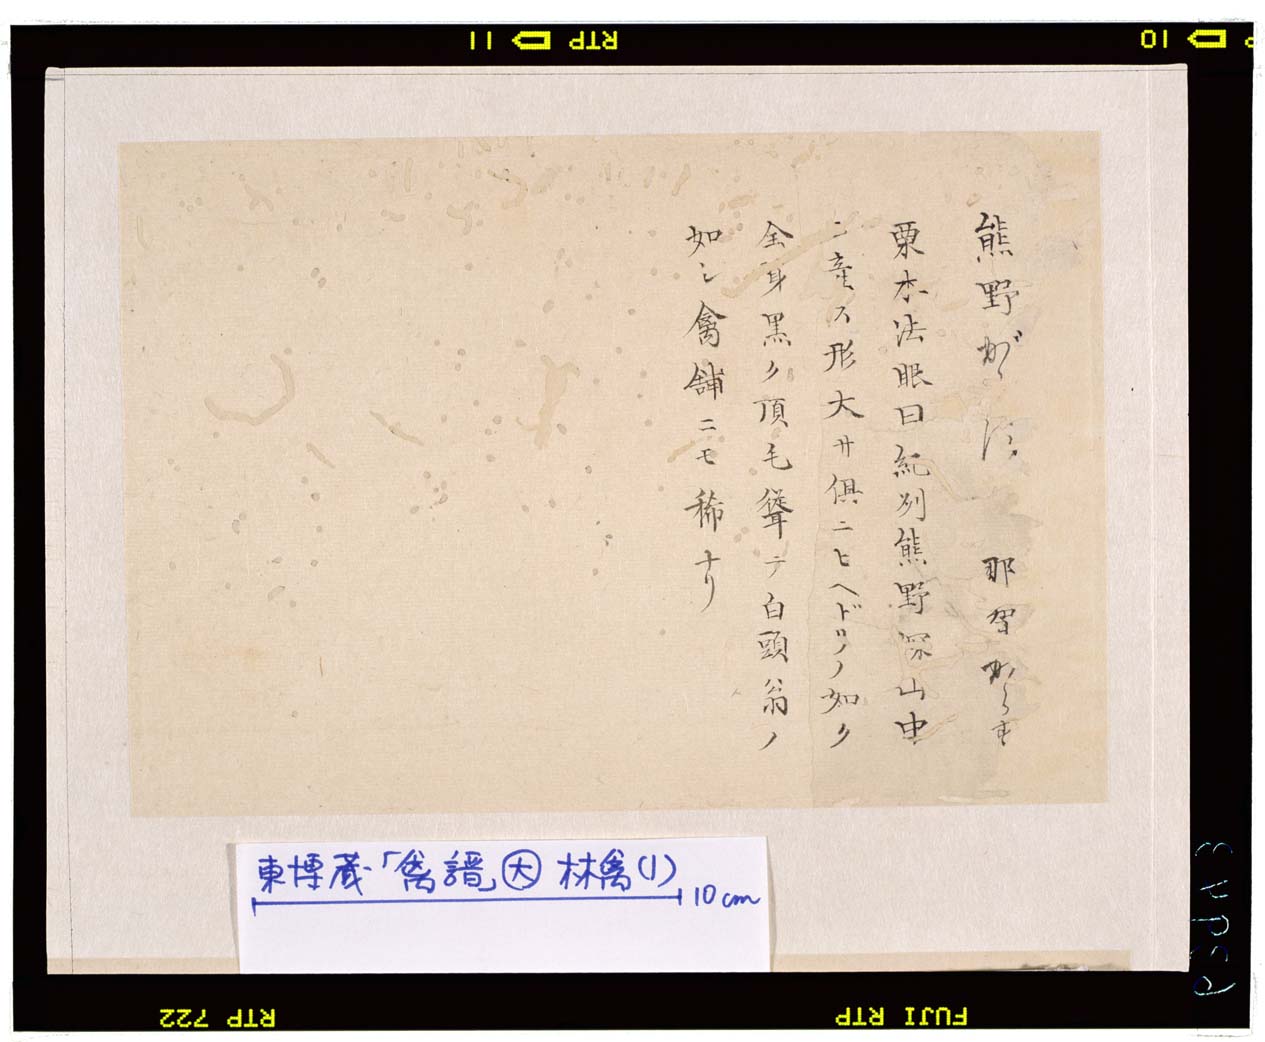 熊野がらす 那智がらす
栗本法眼曰紀州熊野深山中
ニ産ス形大サ倶ニヒヘドリノ如ク
全身黒ク頂毛聳テ白頭翁ノ
如シ禽舗ニモ稀ナリ
東博蔵「禽譜」大 林禽(1)
10cm
RTP 11
10
RTP 722
FUJI RTP